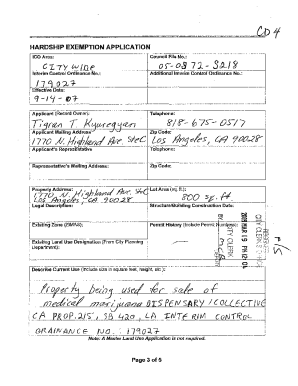 CD 4
HARDSHIP EXEMPTION APPLICATION
ICO Area: Council File No.:
CITY WIDE 05-0872-S218
Interim Control Ordinance No.: Additional Interim Control Ordinance No.:
179027
Effective Date:
9-14-07
Applicant (Recent Owner): Telephone:
Tigran T. Kyuregyan 818-675-0517
Applicant Mailing Address: Zip Code:
1770 N. Highland Ave. SteC Los Angeles, CA 90028
Applicant's Representative Telephone:
Representative's Mailing Address: Zip Code:
Property Address: Lot Area (sq. ft.):
1770 N. Highland Ave. SteC
Los Angeles, CA 90028 800 sq. ft
Legal Description: Structure/Building Construction Date:
Existing Zone (ZIMAS): Permit History (Include Permit Numbers):
Existing Land Use Designation (From City Planning
Department):
CITY CLERK
BY
P/S
Describe Current Use (Include size in square feet, height, etc.):
Property being used for sale of
medical marijuana DISPENSARY/COLLECTIVE
CA PROP. 215, SB 420, LA INTERIM CONTROL
ORDINANCE NO.: 179027
Note: A Master Land Use Application is not required.
Page 3 of 5